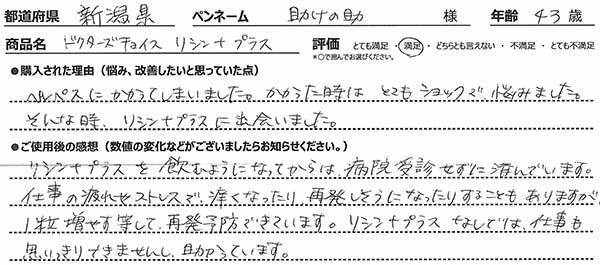 都道府県 新潟県 ペンネーム 助けの助 様 年齢 43 歳
商品名 ドクターズチョイス リシン+プラス 評価 とても満足・満足・どちらとも言えない・不満足・とても不満足
*○で囲んでお選びください。
●購入された理由(悩み、改善したいと思っていた点)
ヘルペスにかかってしまいました。かかった時は とてもショックで、悩みました。
そんな時、リシン+プラスに出会いました。
●ご使用後の感想(数値の変化などがございましたらお知らせください。)
リシン+プラスを飲むようになってからは、病院受診せずに済んでいます。
仕事の疲れやストレスで、痒くなったり、再発しそうになったりすることもありますが、
1粒増やす等して、再発予防できています。リシン+プラスなしでは、仕事も
思いっきりできませんし、助かっています。